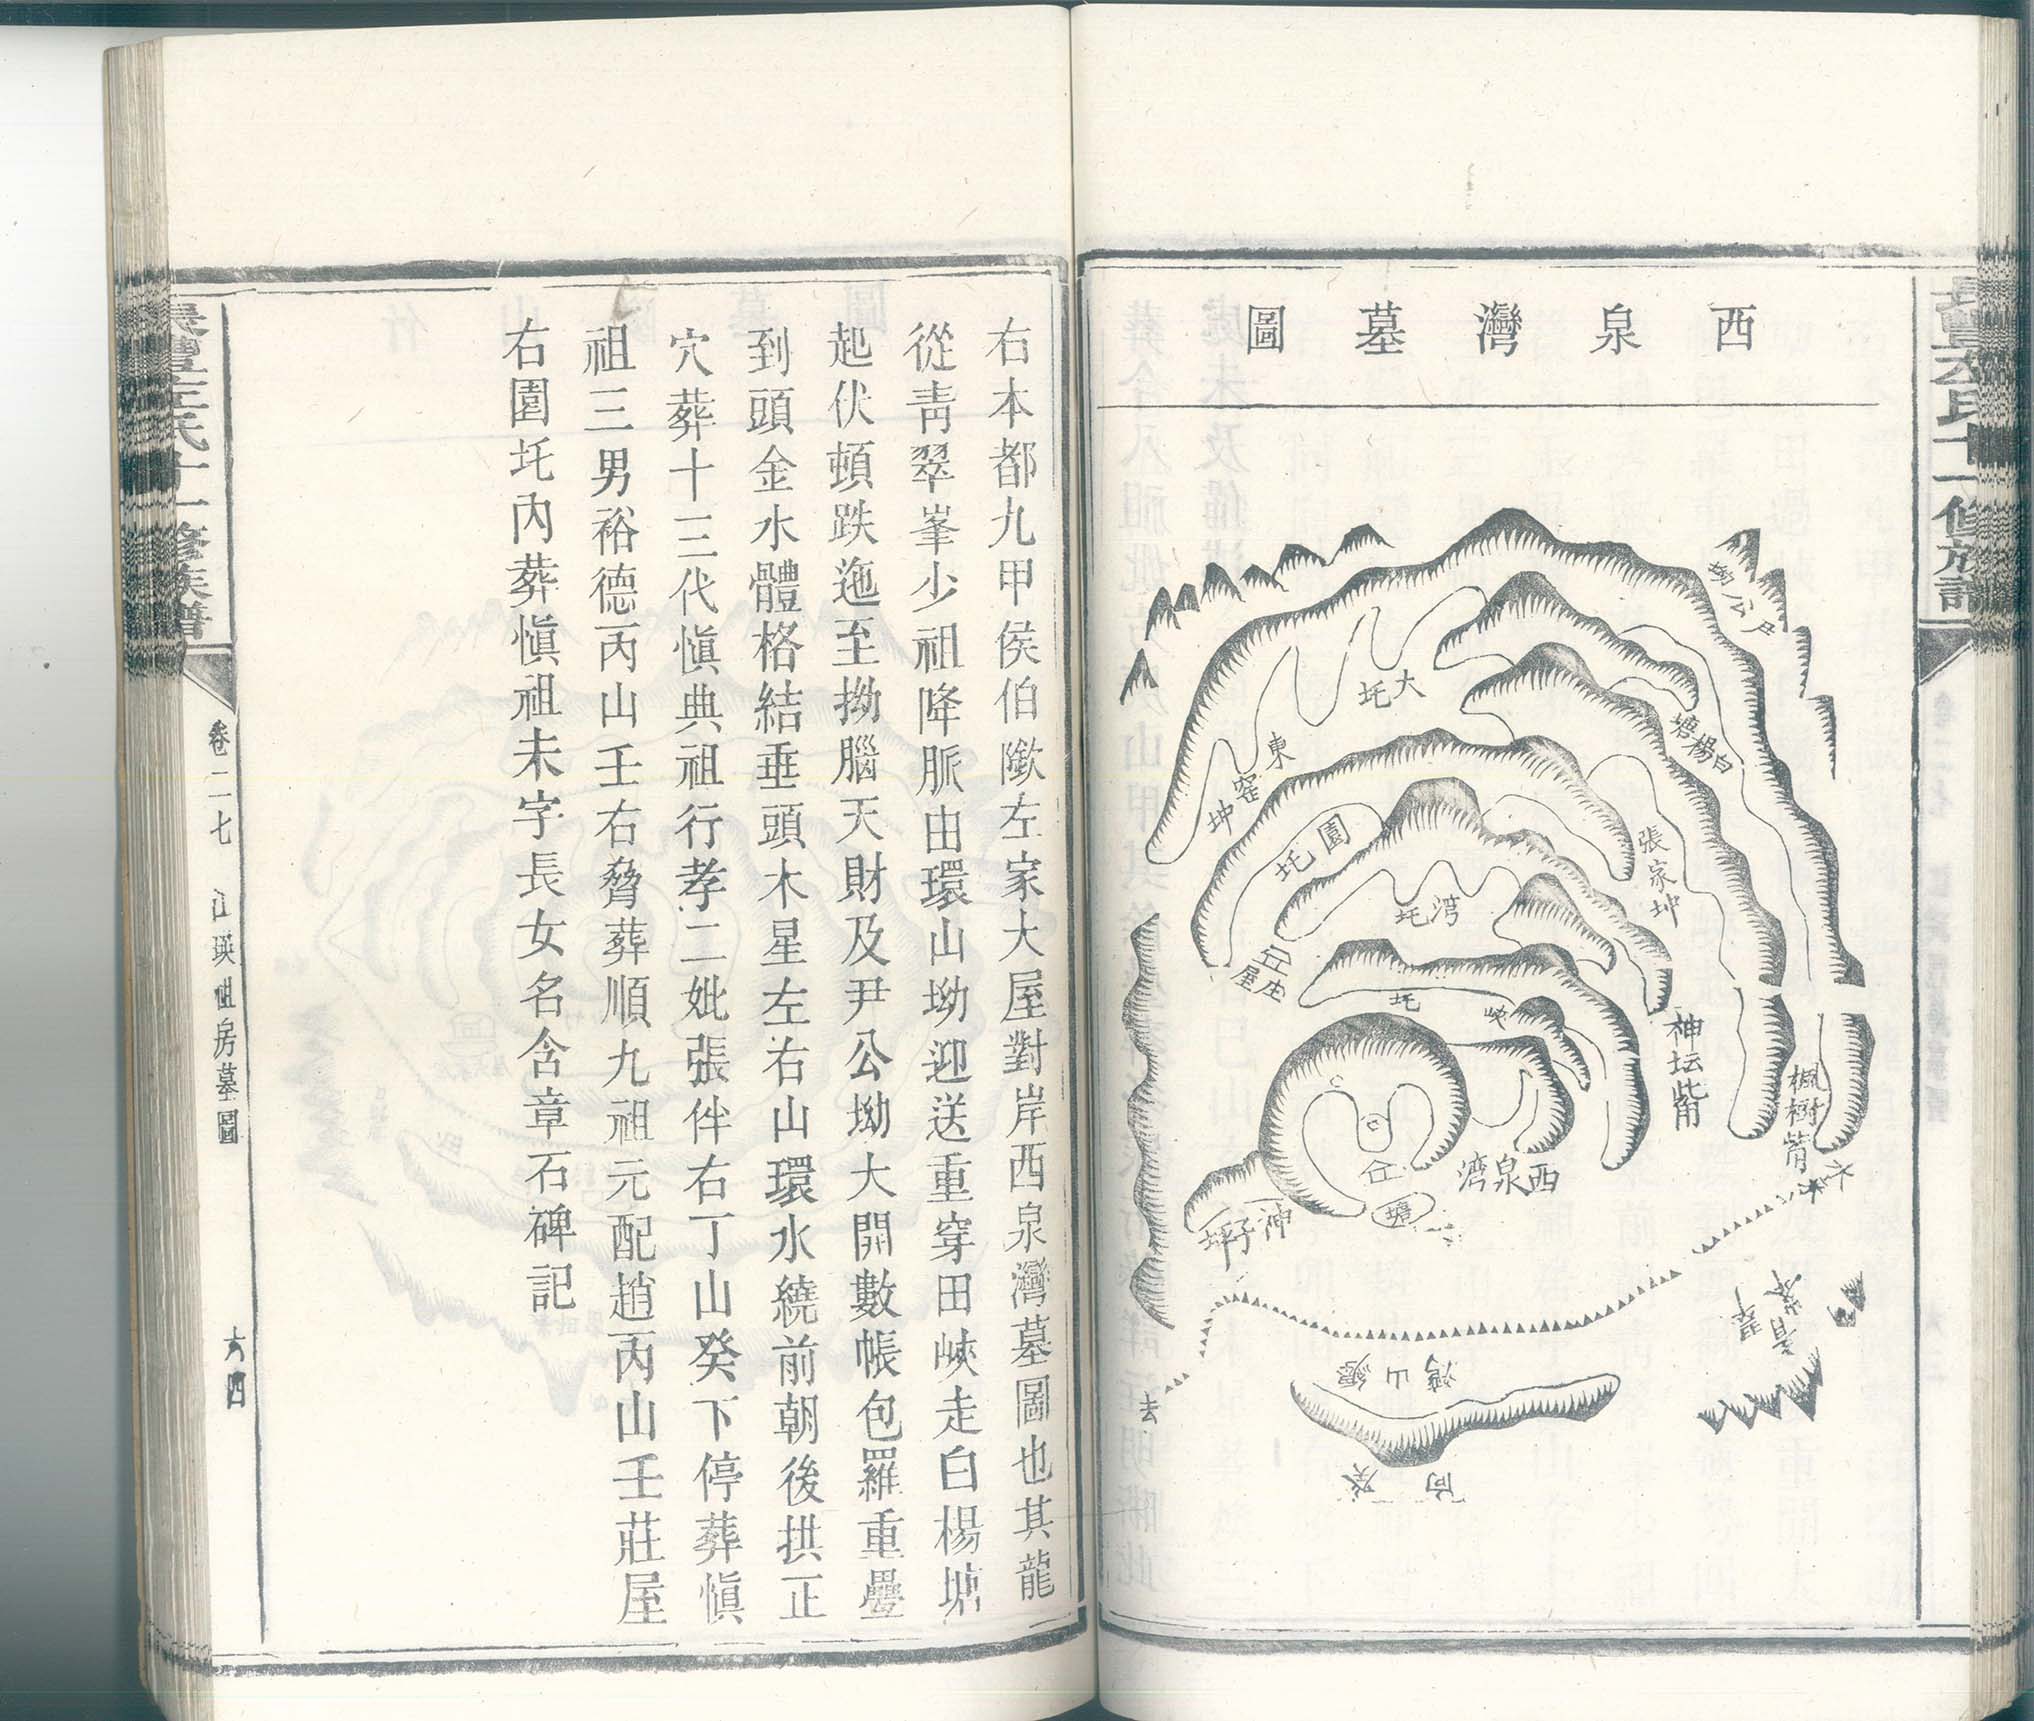 西泉灣墓圖
尹公坳
大圫
白楊塘
東窑坤
園圫
張家坤
湾圫
庄屋
峽圫
神坛嘴
楓樹嘴
水來
西泉湾
塘
沖子坪
青翠峯
灣山
去
向癸
右本都九甲侯伯隞左家大屋對岸西泉灣墓圖也其龍
從靑翠峯少祖降脈由環山坳迎送重穿田峽走白楊塘
起伏頓跌迤至拗腦天財及尹公坳大開數帳包羅重疊
到頭金水體格結垂頭木星左右山環水繞前朝後拱正
穴葬十三代愼典祖行孝二妣張伴右丁山癸下停葬愼
祖三男裕德丙山壬右脅葬順九祖元配趙丙山壬莊屋
右園圫內葬愼祖未字長女名含章石碑記
左氏十一修族譜
卷二七
瑛祖房墓圖
六四